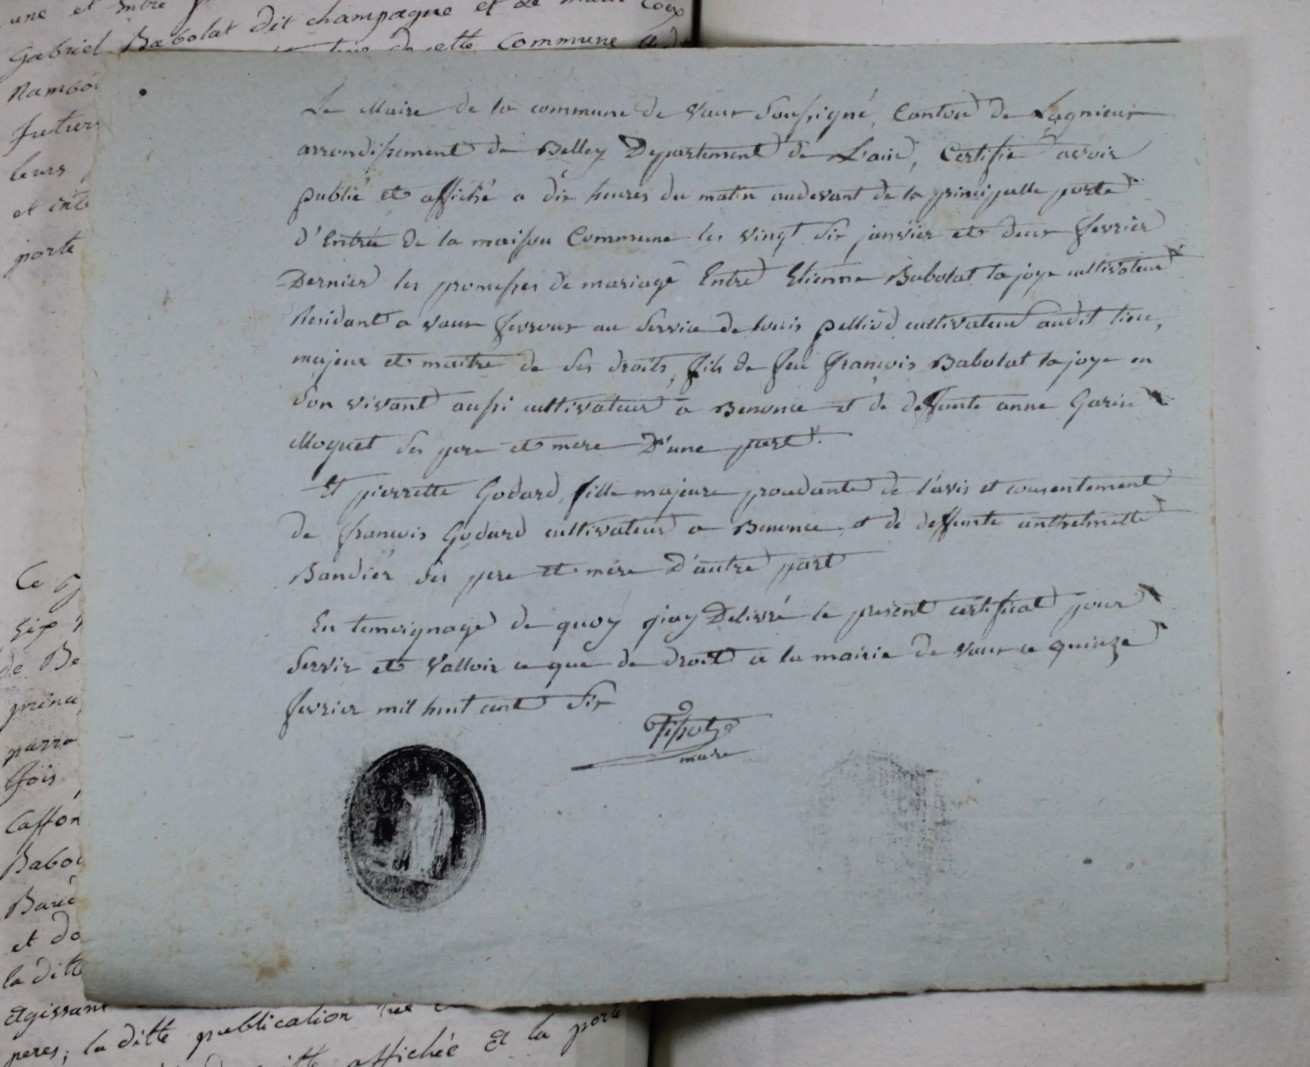 une et entre
Gabriel Babolat dit champagne et de marie
de cette Commune
futurs
leurs
et
porte
Le Maire de la commune de Vaux Soussigné, Canton de Lagnieux
arrondissement de Belley Departement de L'ain, Certifie avoir
publié et affiché a dix heures du matin audevant de la principalle porte
d'Entrée de la maison Commune les vingt six janvier et deux fevrier
Dernier les promesses de mariage Entre Etienne Babolat la joye cultivateur
Residant a vaux fevroux au service de louis pelliod cultivateur audit lieu,
majeur et maitre de ses droits, fils de feu françois Babolat la joye en
son vivant aussi cultivateur a Benonce et de deffunte anne Garin
Moquet ses pere et mere D'une part.
Et pierrette Godard, fille majeure procedante de l'avis et consentement
de françois Godard cultivateur a Benonce et de deffunte anthelmette
Bandier ses pere et mère D'autre part
En temoignage de quoy j'iay Delivré le present certificat pour
Servir et valloir ce que de droit a la mairie de vaux ce quinze
fevrier mil huit cent six
Tissot
maire
Ce
six
de Be
fois
Babo
et do
la ditte
Agissant
peres, la ditte publication
affichée et la porte